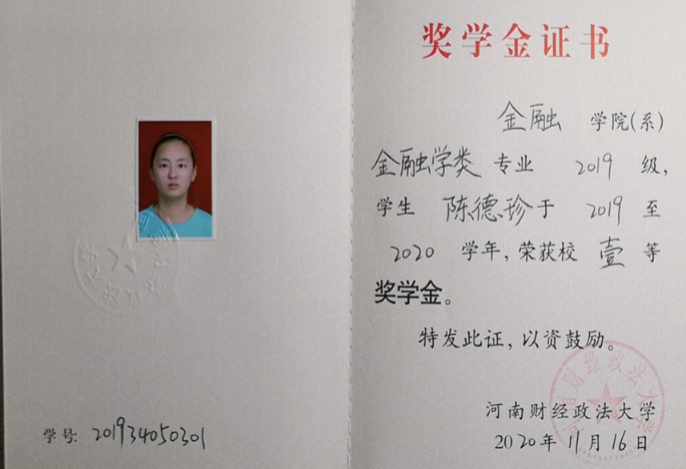 学号: 201934050301
奖学金证书
金融 学院(系)
金融学类 专业 2019 级,
学生 陈德珍 于 2019 至
2020 学年, 荣获校 壹 等
奖学金。
特发此证, 以资鼓励。
河南财经政法大学
2020年11月16日